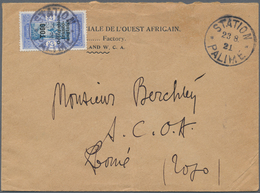 STATION
IALE DE L'OUEST AFRICAIN.
........ Factory.
LAND W. C. A.
STATION
22 8
21
PALIME
Monsieur Berchley
S. C. O. A.
Lomé
(Togo)